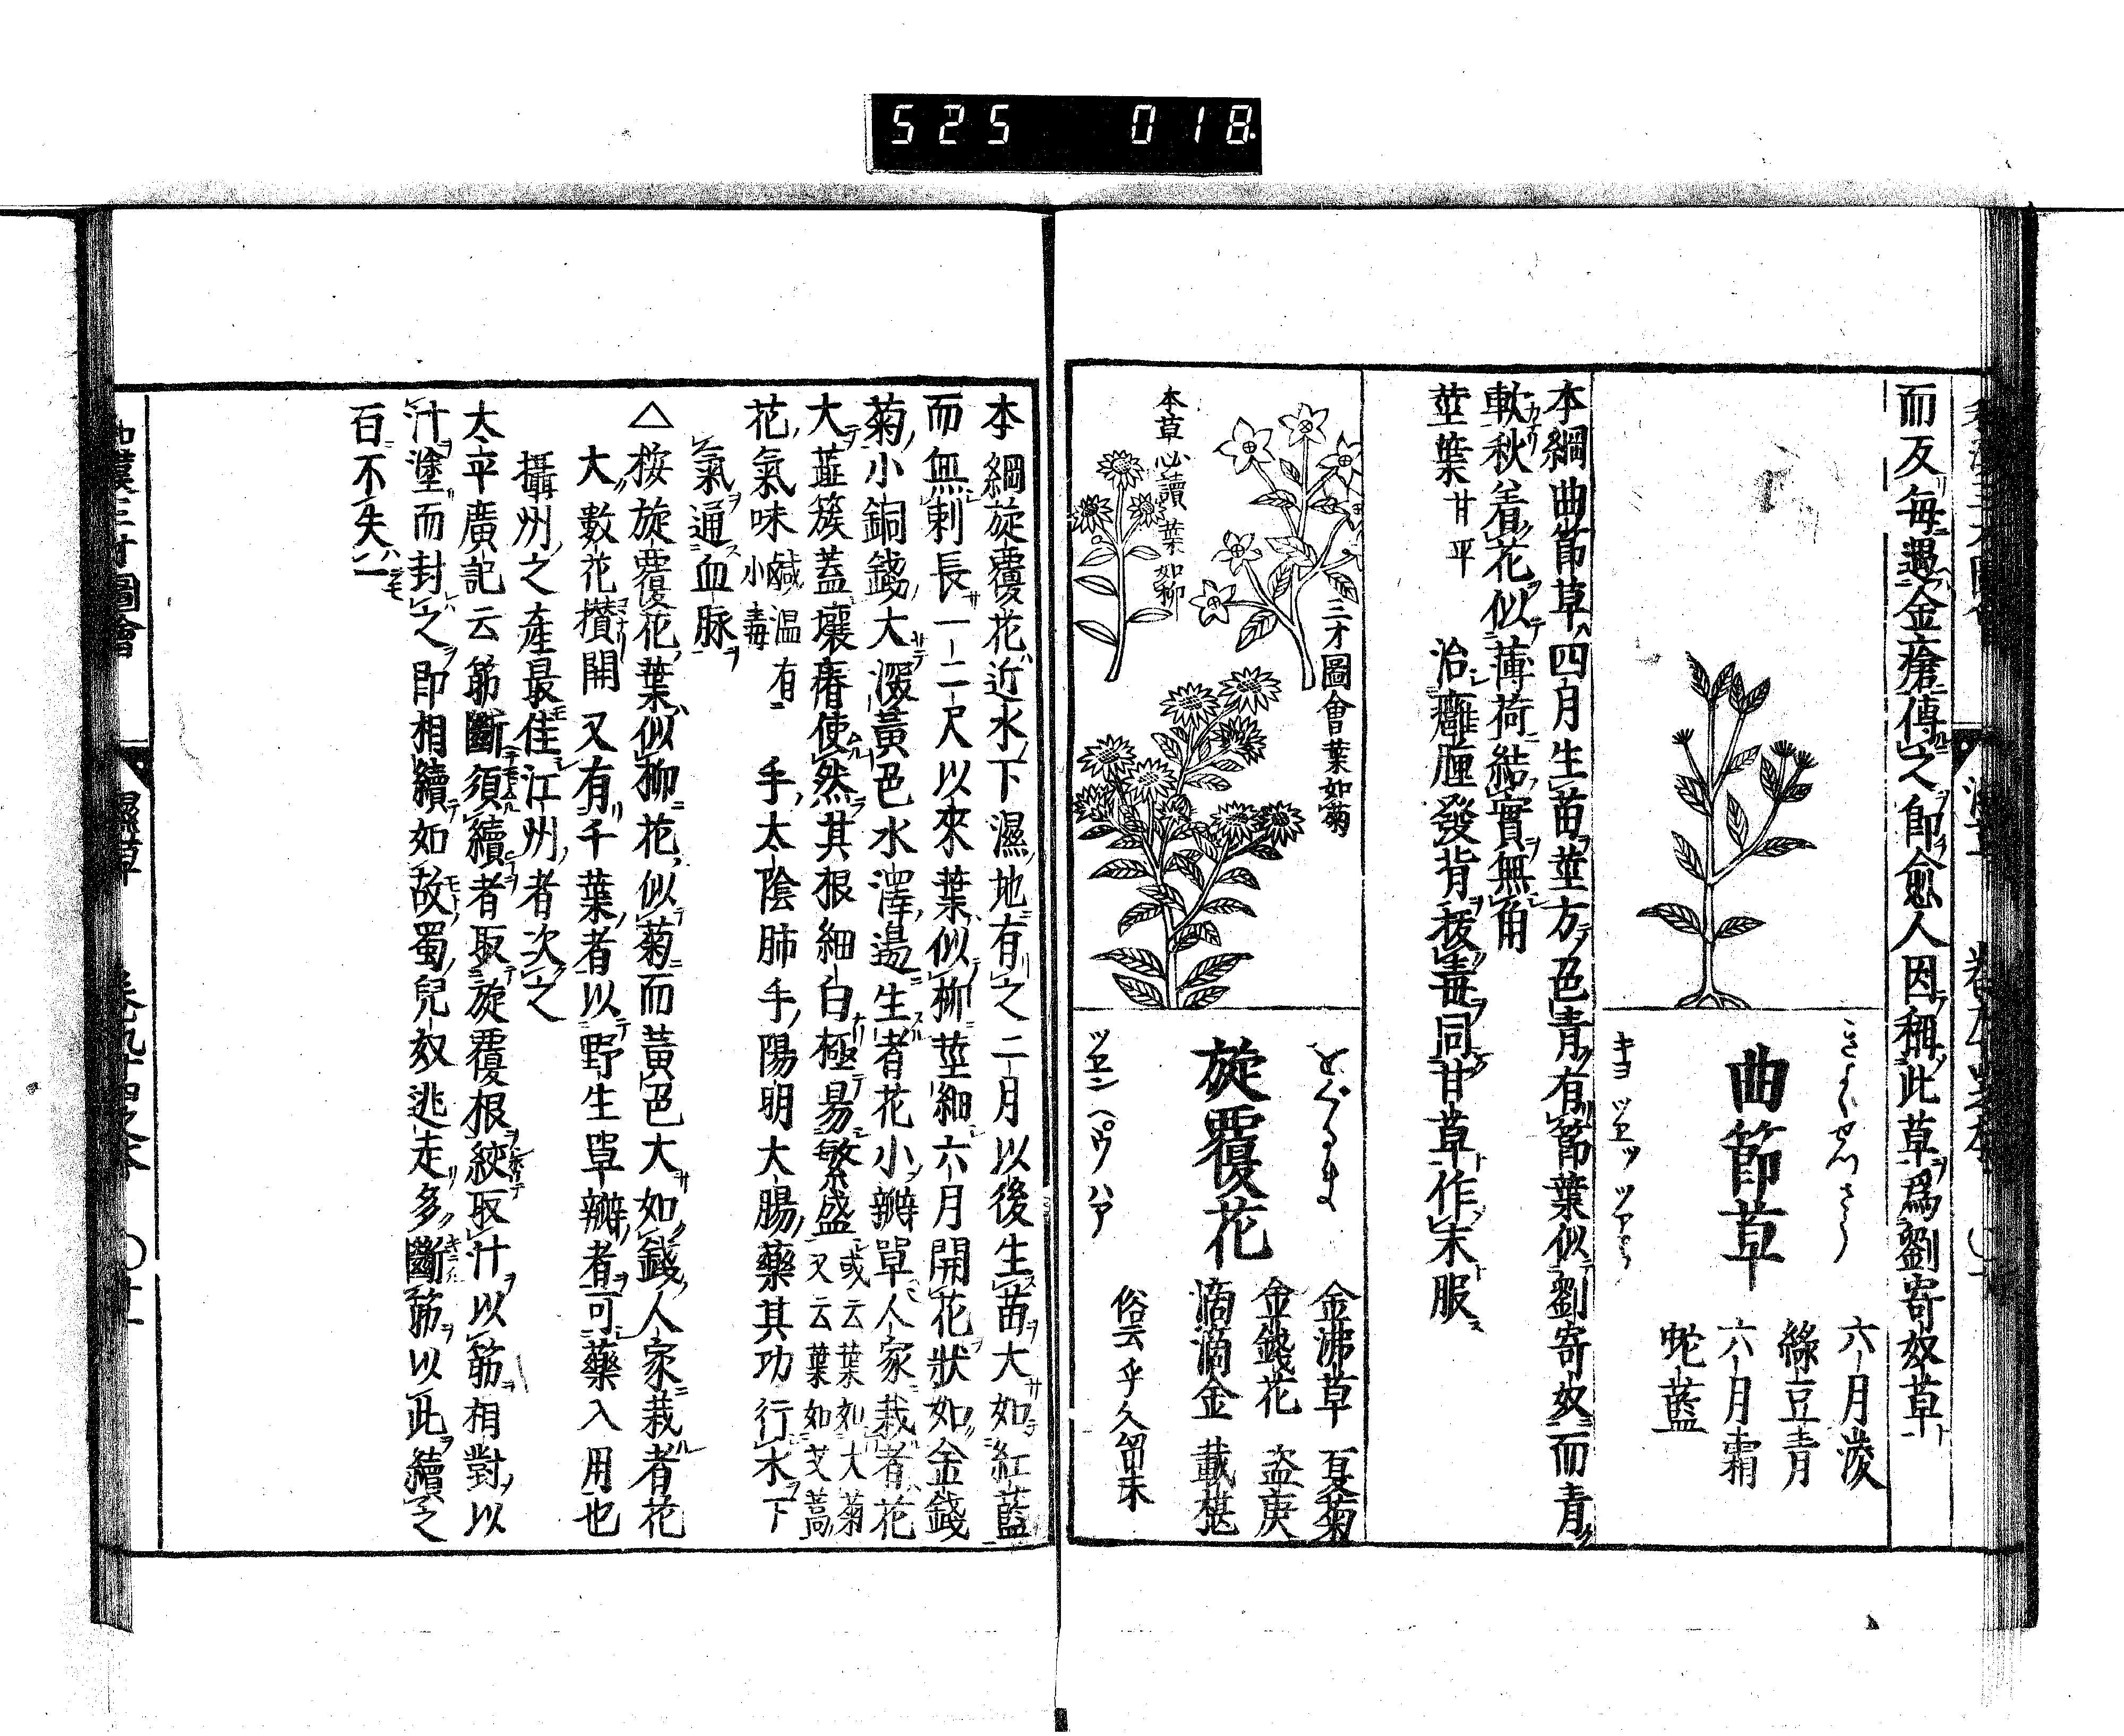 525 018
而反每遇金瘡傅之卽愈人因稱此草爲劉寄奴草
きよくせつさう
曲節草
キヨ ツヱツ ツアウ
六月淩
綠豆青
六月霜
蛇藍
本綱曲節草四月生苗莖方色青有節葉似劉寄奴而青
軟秋着花似薄荷結實無角
莖葉 甘平 治癰腫發背拔毒同甘草作末服
三才圖會葉如菊
本草必讀葉如柳
をぐるま
旋覆花
ツヱン ペウ ハアヽ
金沸草 夏菊
金錢花 盗庚
滴滴金 戴椹
俗云乎久留末
本綱旋覆花近水下濕地有之二月以後生苗大如紅藍
而無刺長一二尺以來葉似柳莖細六月開花狀如金錢
菊小銅錢大深黃色水澤邉生者花小瓣單人家栽者花
大蕋簇蓋壤瘠使然其根細白極易繁盛 或云葉如大菊
又云葉如艾蒿
花氣味 鹹温有
小毒 手太陰肺手陽明大腸藥其功行水下
氣通血脉
△按旋覆花葉似柳花似菊而黃色大如錢人家栽者花
大數花攅開又有千葉者以野生單瓣者可藥入用也
攝州之產最佳江州者次之
太平廣記云筋斷須續者取旋覆根絞取汁以筋相對以
汁塗而封之卽相續如故蜀兒奴逃走多斷筋以此續之
百不失一
和漢三才圖會 濕草 卷九十四之本